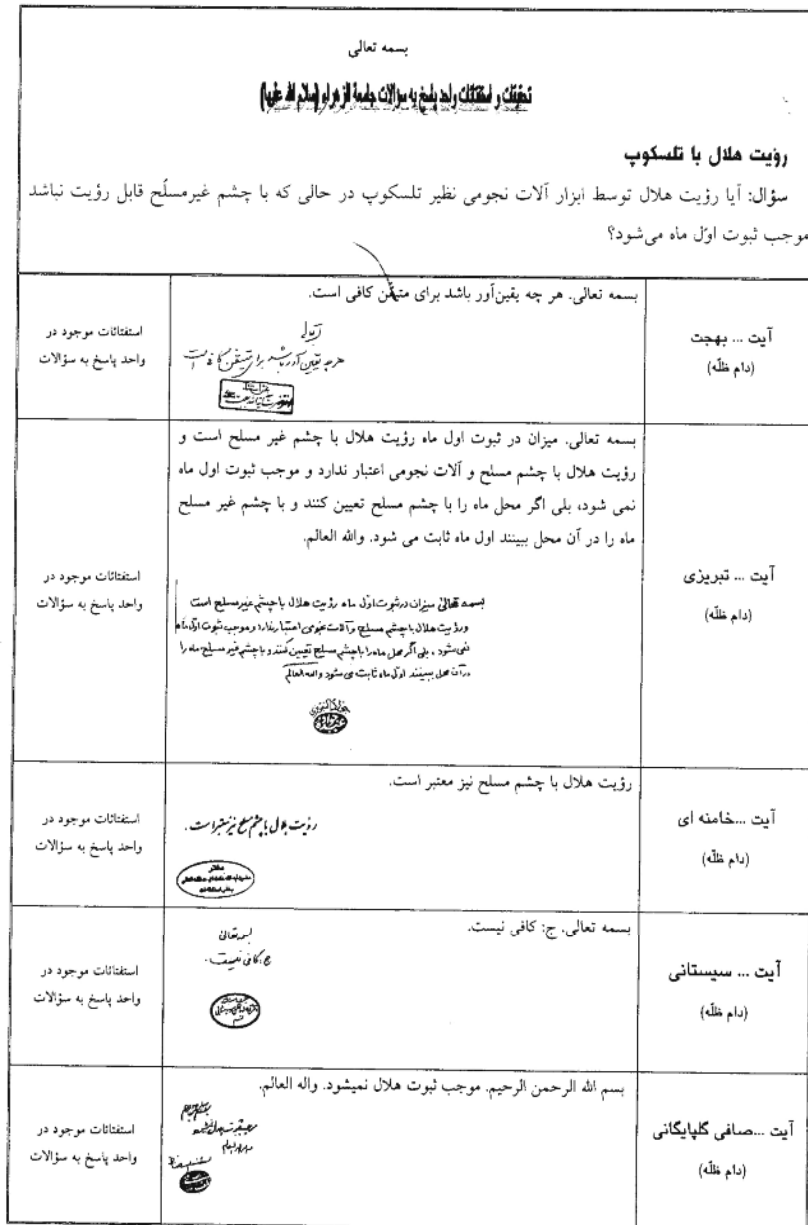 بسمه تعالی
تحقیقات و استفتائات واحد پاسخ به سؤالات جامعة الزهراء (سلام الله علیها)
رؤیت هلال با تلسکوپ
سؤال: آیا رؤیت هلال توسط ابزار آلات نجومی نظیر تلسکوپ در حالی که با چشم غیرمسلّح قابل رؤیت نباشد
موجب ثبوت اوّل ماه می‌شود؟
آیت ... بهجت
(دام ظلّه)
بسمه تعالی. هر چه یقین‌آور باشد برای متیقّن کافی است.
هرچه یقین‌آور باشد برای متیقن کافی است
استفتائات موجود در
واحد پاسخ به سؤالات
آیت ... تبریزی
(دام ظلّه)
بسمه تعالی. میزان در ثبوت اول ماه رؤیت هلال با چشم غیر مسلح است و
رؤیت هلال با چشم مسلح و آلات نجومی اعتبار ندارد و موجب ثبوت اول ماه
نمی شود، بلی اگر محل ماه را با چشم مسلح تعیین کنند و با چشم غیر مسلح
ماه را در آن محل ببینند اول ماه ثابت می شود. والله العالم.
بسمه تعالی میزان در ثبوت اوّل ماه رؤیت هلال با چشم غیر مسلح است
و رؤیت هلال با چشم مسلح و آلات نجومی اعتبار ندارد و موجب ثبوت اوّل ماه
نمی شود، بلی اگر محل ماه را با چشم مسلح تعیین کنند و با چشم غیر مسلح ماه را
در آن محل ببینند اوّل ماه ثابت می شود والله العالم
استفتائات موجود در
واحد پاسخ به سؤالات
آیت ...خامنه ای
(دام ظلّه)
رؤیت هلال با چشم مسلح نیز معتبر است.
رؤیت هلال با چشم مسلح نیز معتبر است.
استفتائات موجود در
واحد پاسخ به سؤالات
آیت ... سیستانی
(دام ظلّه)
بسمه تعالی. ج: کافی نیست.
بسمه تعالی
ج: کافی نیست.
استفتائات موجود در
واحد پاسخ به سؤالات
آیت ...صافی گلپایگانی
(دام ظلّه)
بسم الله الرحمن الرحیم. موجب ثبوت هلال نمیشود. واله العالم.
استفتائات موجود در
واحد پاسخ به سؤالات